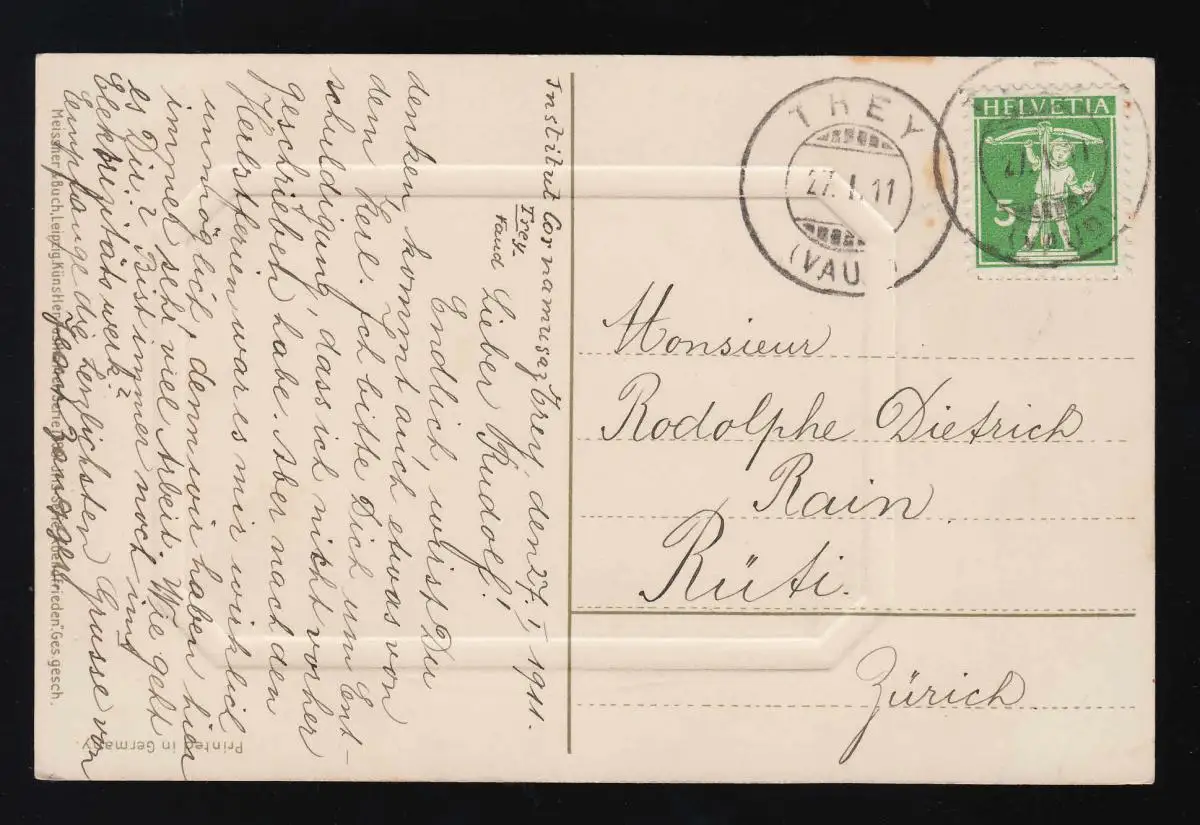 Institut Cornamusaz Trey, den 27. I. 1911.
Trey.
Vaud
Lieber Rudolf!
Endlich, wirst Du
denken, kommt auch etwas von
dem Kerl. Ich bitte Dich um Ent-
schuldigung, dass ich nicht vorher
geschrieben habe. Aber nach den
Herbstferien war es mir wirklich
unmöglich, denn wir haben hier
immer sehr viel Arbeit. Wie geht
es Dir? Bist immer noch im
Elektrizitätswerk?
Empfange die herzlichsten Grüsse von
Meissner & Buch, Leipzig, Künstler
Ges. gesch.
Printed in Germany.
TREY
27. I. 11
(VAU
HELVETIA
5
27. I. 11
(VAUD)
Monsieur
Rodolphe Dietrich
Rain
Rüti.
Zürich